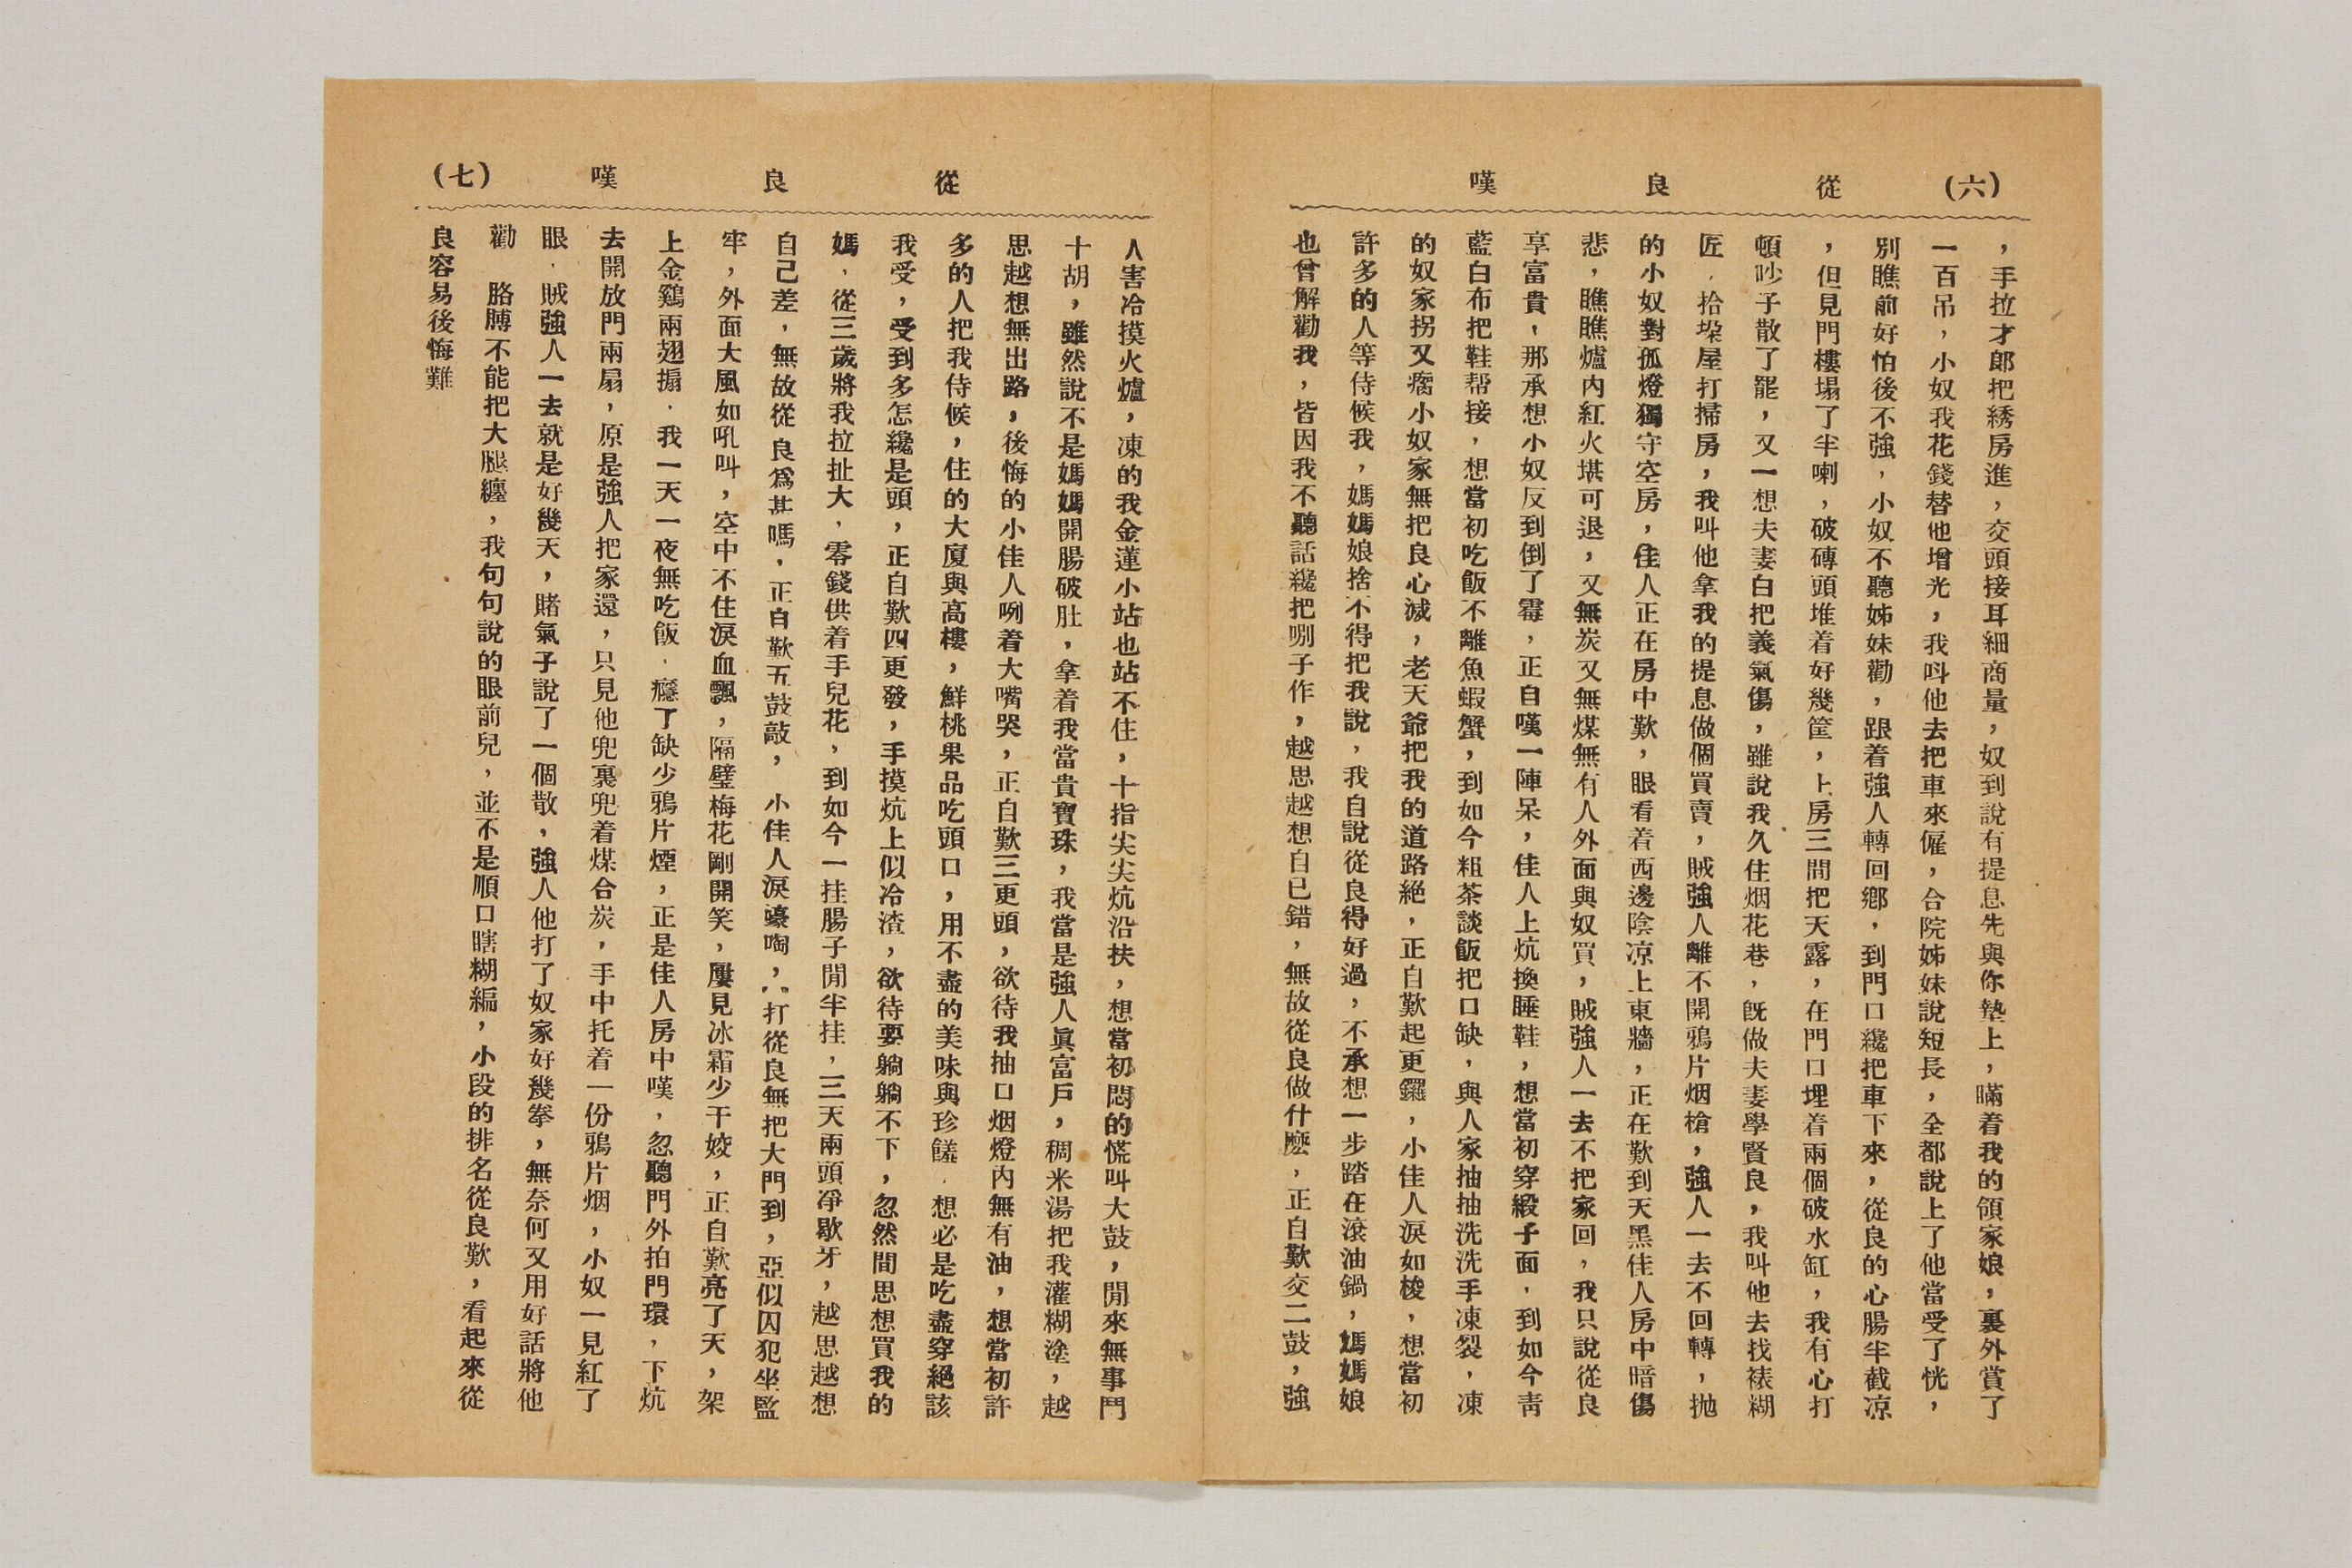 (六)　從　良　嘆
，手拉才郎把綉房進，交頭接耳細商量，奴到說有提息先與你墊上，瞞着我的領家娘，裏外賞了
一百吊，小奴我花錢替他增光，我呌他去把車來僱，合院姊妹說短長，全都說上了他當受了恍，
別瞧前好怕後不強，小奴不聽姊妹勸，跟着強人轉回鄉，到門口纔把車下來，從良的心腸半截凉
，但見門樓塌了半喇，破磚頭堆着好幾筐，上房三間把天露，在門口埋着兩個破水缸，我有心打
頓吵子散了罷，又一想夫妻白把義氣傷，雖說我久住烟花巷，旣做夫妻學賢良，我叫他去找裱糊
匠，拾垜屋打掃房，我叫他拿我的提息做個買賣，賊強人離不開鴉片烟槍，強人一去不回轉，抛
的小奴對孤燈獨守空房，佳人正在房中歎，眼看着西邊陰凉上東牆，正在歎到天黑佳人房中暗傷
悲，瞧瞧爐內紅火堪可退，又無炭又無煤無有人外面與奴買，賊強人一去不把家回，我只說從良
享富貴，那承想小奴反到倒了霉，正自嘆一陣呆，佳人上炕換睡鞋，想當初穿緞子面，到如今青
藍白布把鞋帮接，想當初吃飯不離魚蝦蟹，到如今粗茶談飯把口缺，與人家抽抽洗洗手凍裂，凍
的奴家拐又瘸小奴家無把良心滅，老天爺把我的道路絕，正自歎起更鑼，小佳人淚如梭，想當初
許多的人等侍候我，媽媽娘捨不得把我說，我自說從良得好過，不承想一步踏在滾油鍋，媽媽娘
也曾解勸我，皆因我不聽話纔把咧子作，越思越想自已錯，無故從良做什麽，正自歎交二鼓，強
(七)　從　良　嘆
人害冷摸火爐，凍的我金蓮小站也站不住，十指尖尖炕沿扶，想當初悶的慌叫大鼓，閒來無事鬥
十胡，雖然說不是媽媽開腸破肚，拿着我當貴寶珠，我當是強人眞富戶，稠米湯把我灌糊塗，越
思越想無出路，後悔的小佳人咧着大嘴哭，正自歎三更頭，欲待我抽口烟燈內無有油，想當初許
多的人把我侍候，住的大廈與高樓，鮮桃果品吃頭口，用不盡的美味與珍饈，想必是吃盡穿絕該
我受，受到多怎纔是頭，正自歎四更發，手摸炕上似冷渣，欲待要躺躺不下，忽然間思想買我的
媽，從三歲將我拉扯大，零錢供着手兒花，到如今一挂腸子閒半挂，三天兩頭凈歇牙，越思越想
自己差，無故從良爲甚嗎，正自歎五鼓敲，小佳人淚嚎啕，打從良無把大門到，亞似囚犯坐監
牢，外面大風如吼叫，空中不住淚血飄，隔壁梅花剛開笑，屢見冰霜少干姣，正自歎亮了天，架
上金鷄兩翅搧，我一天一夜無吃飯，癮了缺少鴉片煙，正是佳人房中嘆，忽聽門外拍門環，下炕
去開放門兩扇，原是強人把家還，只見他兜裏兜着煤合炭，手中托着一份鴉片烟，小奴一見紅了
眼，賊強人一去就是好幾天，賭氣子說了一個散，強人他打了奴家好幾拳，無奈何又用好話將他
勸　胳膊不能把大腿纏，我句句說的眼前兒，並不是順口瞎糊編，小段的排名從良歎，看起來從
良容易後悔難